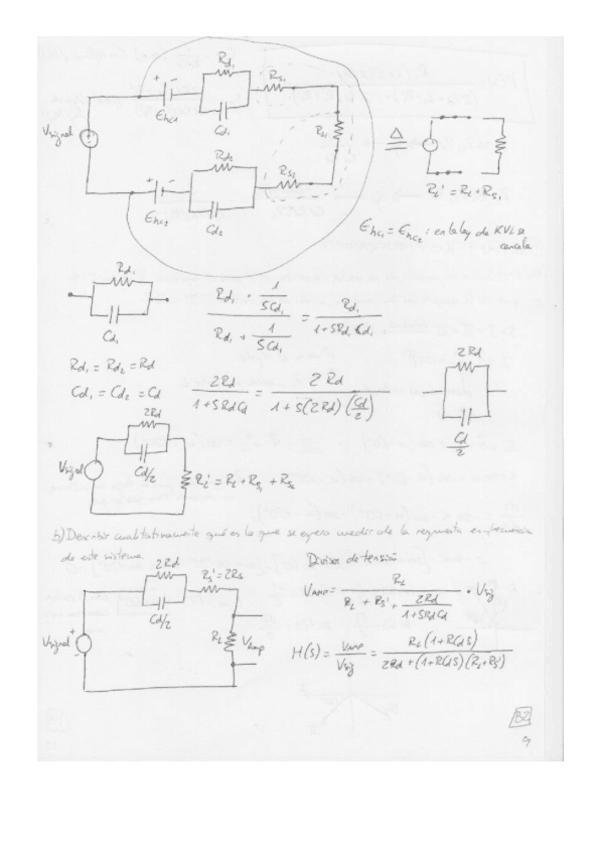 Rd₁
Rs₁
+ -
Ehc1
Cd₁
Vsignal
Rd₂
Rs₂
+ -
Ehc₂
Cd₂
Δ
=
RL' = RL + RS₁
Ehc₁ = Ehc₂ : en la ley de KVL se
cancela
Rd₁
Cd₁
Rd₁ · 1/SCd₁ / Rd₁ + 1/SCd₁ = Rd₁ / 1+SRd₁Cd₁
Rd₁ = Rd₂ = Rd
Cd₁ = Cd₂ = Cd
2Rd / 1+SRdCd = 2Rd / 1+S(2Rd)(Cd/2)
2Rd
Cd/2
2Rd
Cd/2
Vsignal
RL' = RL + RS₁ + RS₂
b) Describir cualitativamente qué es lo que se espera medir de la respuesta en frecuencia
de este sistema.
2Rd
Rs' = 2Rs
Cd/2
Vsignal
+
-
RL
Vamp
Divisor de tensión
Vamp = RL / RL + RS' + 2Rd/1+SRdCd · Vsig
H(s) = Vamp/Vsig = RL(1+RdCdS) / 2Rd+(1+RdCdS)(RL+RS')
B2